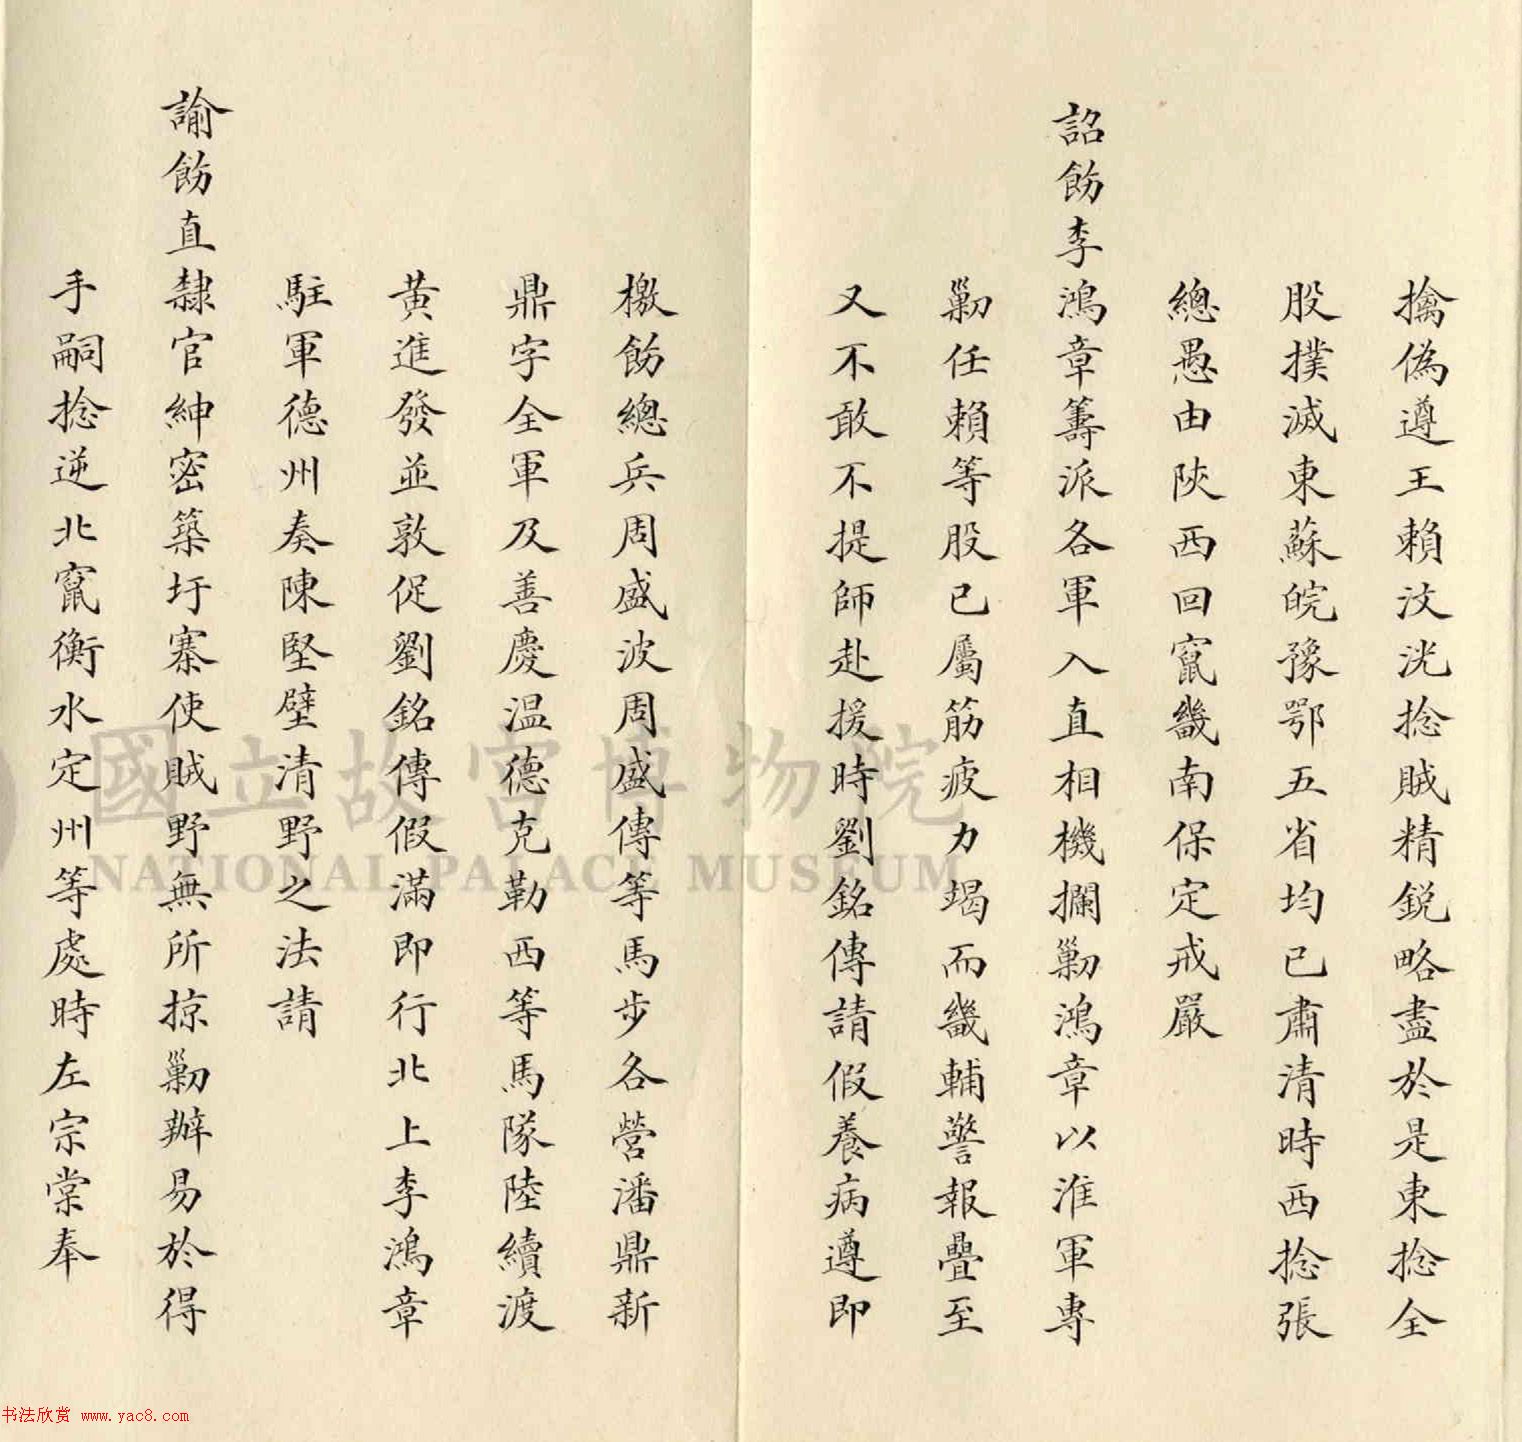 擒偽遵王賴汶洸捻賊精銳略盡於是東捻全
股撲滅東蘇皖豫鄂五省均已肅清時西捻張
總愚由陝西回竄畿南保定戒嚴
詔飭李鴻章籌派各軍入直相機攔勦鴻章以淮軍專
勦任賴等股已屬筋疲力竭而畿輔警報疊至
又不敢不提師赴援時劉銘傳請假養病遵即
檄飭總兵周盛波周盛傳等馬步各營潘鼎新
鼎字全軍及善慶温德克勒西等馬隊陸續渡
黃進發並敦促劉銘傳假滿即行北上李鴻章
駐軍德州奏陳堅壁清野之法請
諭飭直隸官紳密築圩寨使賊野無所掠勦辦易於得
手嗣捻逆北竄衡水定州等處時左宗棠奉
國立故宮博物院
NATIONAL PALACE MUSEUM
书法欣赏 www.yac8.com